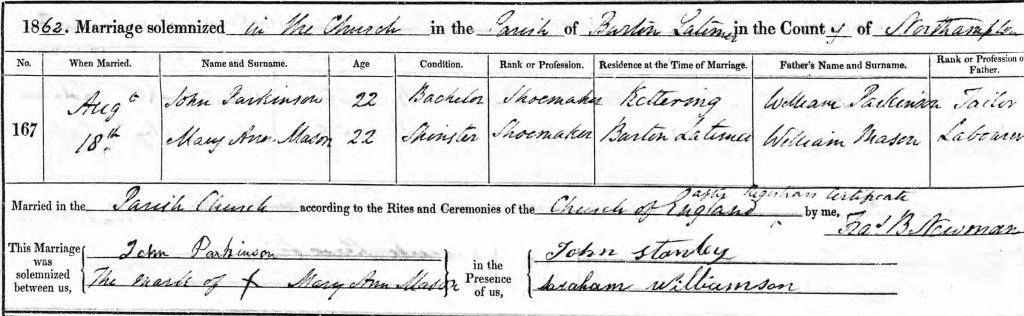 1862. Marriage solemnized in the Church in the Parish of Burton Latimer in the County of Northampton
No. When Married. Name and Surname. Age Condition. Rank or Profession. Residence at the Time of Marriage. Father's Name and Surname. Rank or Profession of Father.
167 Augt 18th John Parkinson 22 Bachelor Shoemaker Kettering William Parkinson Tailor
Mary Ann Mason 22 Spinster Shoemaker Burton Latimer William Mason Labourer
Married in the Parish Church according to the Rites and Ceremonies of the Church of England after Registrars Certificate by me,
Fras B. Newman
This Marriage was solemnized between us, John Parkinson in the Presence of us, John Stanley
The mark of X Mary Ann Mason Graham Williamson